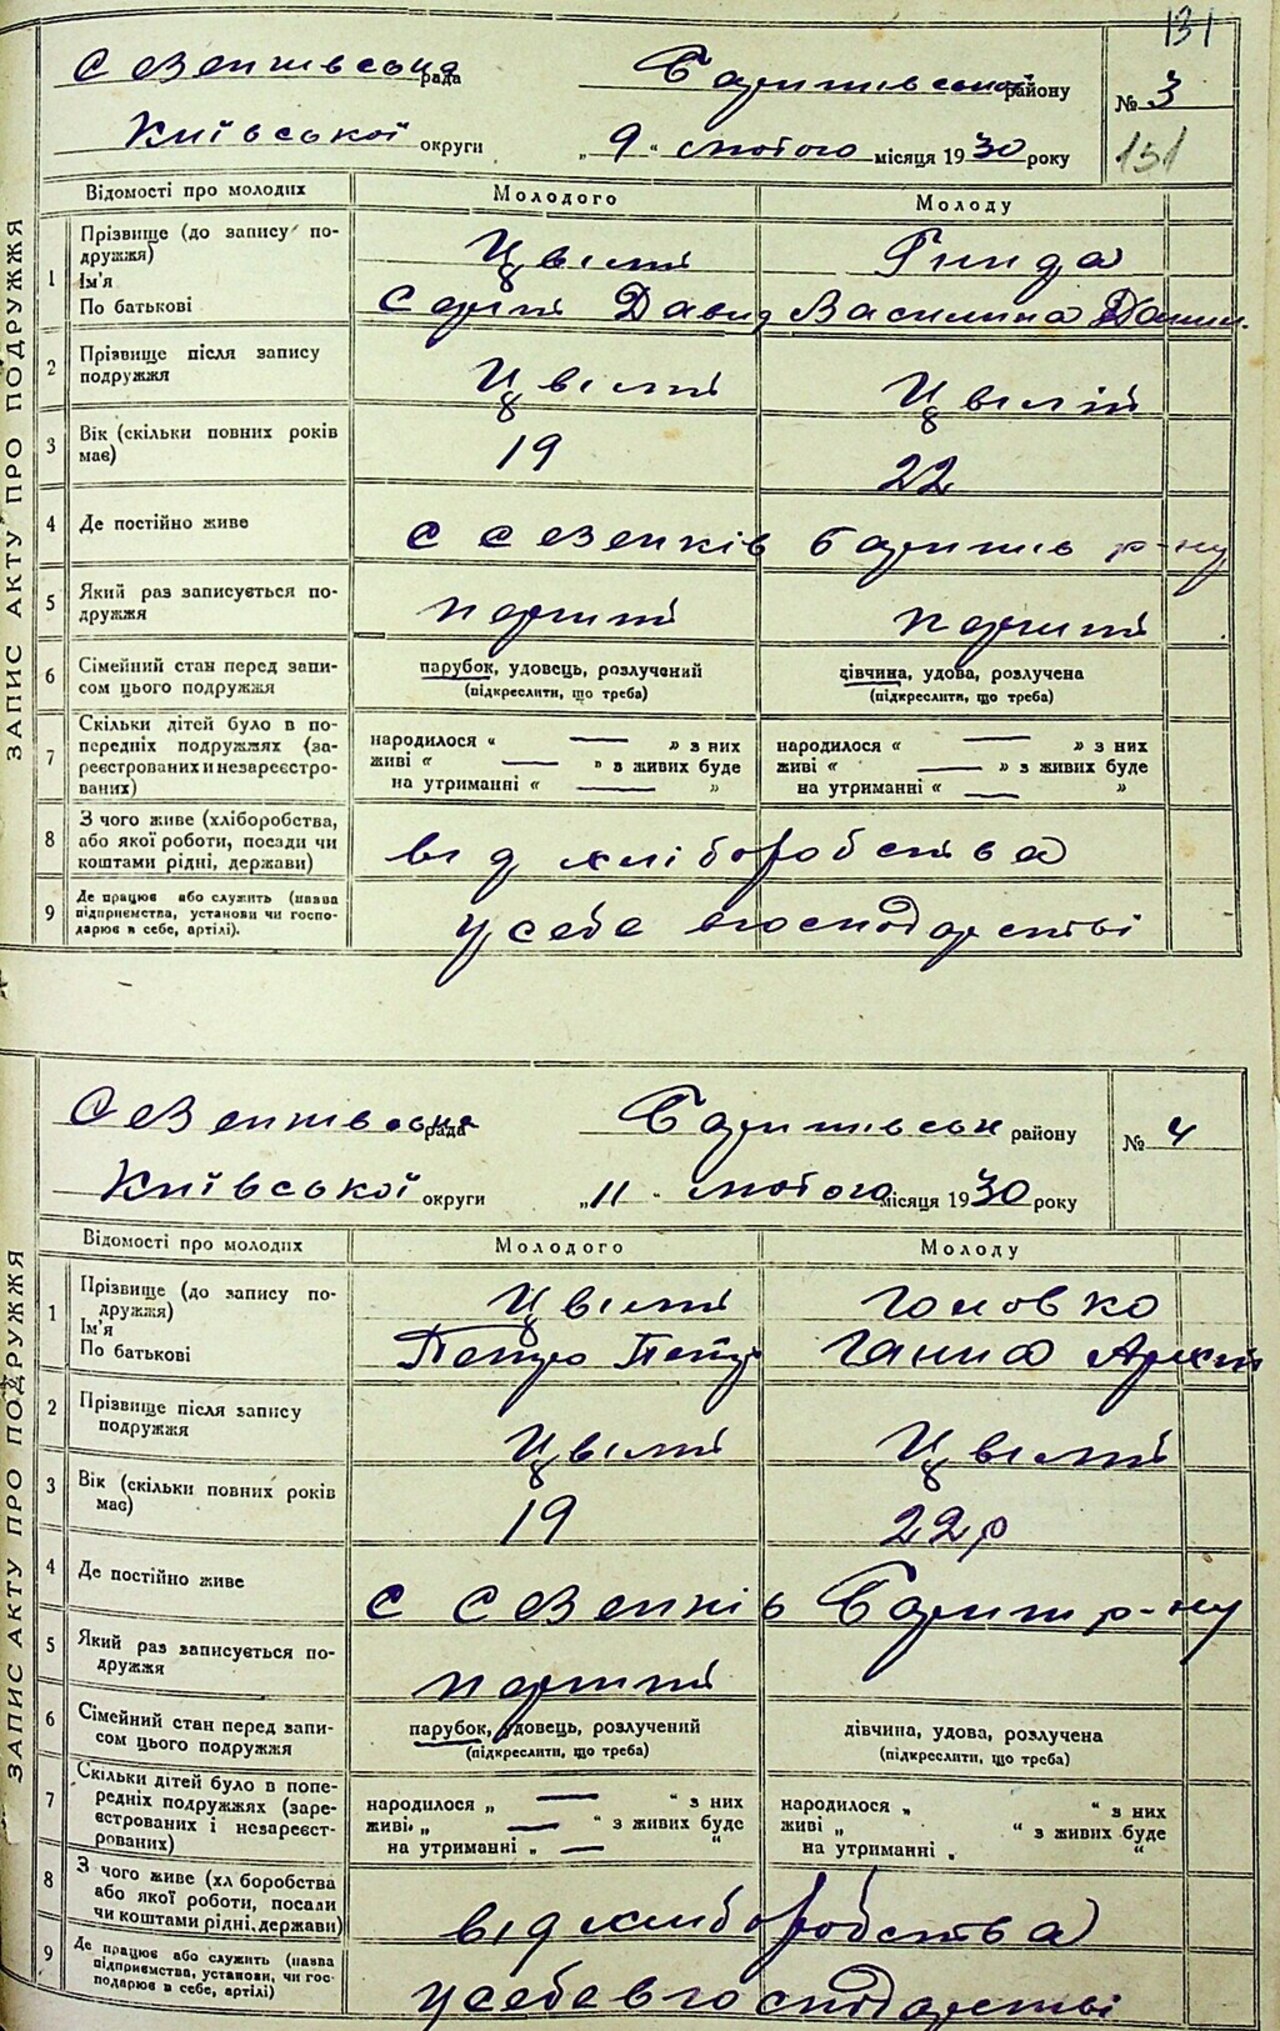 131
Сезенківська рада Баришівської району № 3
Київської округи „ 9 “ лютого місяця 1930 року 151
ЗАПИС АКТУ ПРО ПОДРУЖЖЯ
Відомості про молодих Молодого Молоду
1 Прізвище (до запису по-
дружжя) Цвілий Гнида
Ім'я
По батькові Сергій Давид Василина Данил.
2 Прізвище після запису
подружжя Цвілий Цвілій
3 Вік (скільки повних років
має) 19 22
4 Де постійно живе с Сезенків Баришів р-ну
5 Який раз записується по-
дружжя перший перший
6 Сімейний стан перед запи-
сом цього подружжя
парубок, удовець, розлучений дівчина, удова, розлучена
(підкреслити, що треба) (підкреслити, що треба)
7 Скільки дітей було в по-
передніх подружжях (за-
реєстрованих и незареєстро-
ваних)
народилося „ — » з них народилося „ — » з них
живі „ — » з живих буде живі „ — » з живих буде
на утриманні „ — » на утриманні „ — »
8 З чого живе (хліборобства,
або якої роботи, посади чи
коштами рідні, держави) від хліборобства
9 Де працює або служить (назва
підприємства, установи чи госпо-
дарює в себе, артілі). у себе в господарстві
Сезенківська рада Баришівськ району № 4
Київської округи „ 11 “ лютого місяця 1930 року
ЗАПИС АКТУ ПРО ПОДРУЖЖЯ
Відомості про молодих Молодого Молоду
1 Прізвище (до запису по-
дружжя) Цвілий Головко
Ім'я
По батькові Петро Петр Ганна
2 Прізвище після запису
подружжя Цвілий Цвілий
3 Вік (скільки повних років
має) 19 22 р
4 Де постійно живе с Сезенків Бариш р-ну
5 Який раз записується по-
дружжя перший
6 Сімейний стан перед запи-
сом цього подружжя
парубок, удовець, розлучений дівчина, удова, розлучена
(підкреслити, що треба) (підкреслити, що треба)
7 Скільки дітей було в попе-
редніх подружжях (заре-
єстрованих і незареєст-
рованих)
народилося „ — “ з них народилося „ “ з них
живі „ — “ з живих буде живі „ “ з живих буде
на утриманні „ — “ на утриманні „ “
8 З чого живе (хл боробства
або якої роботи, посади
чи коштами рідні, держави) від хліборобства
9 Де працює або служить (назва
підприємства, установи, чи гос-
подарює в себе, артілі) у себе в господарстві